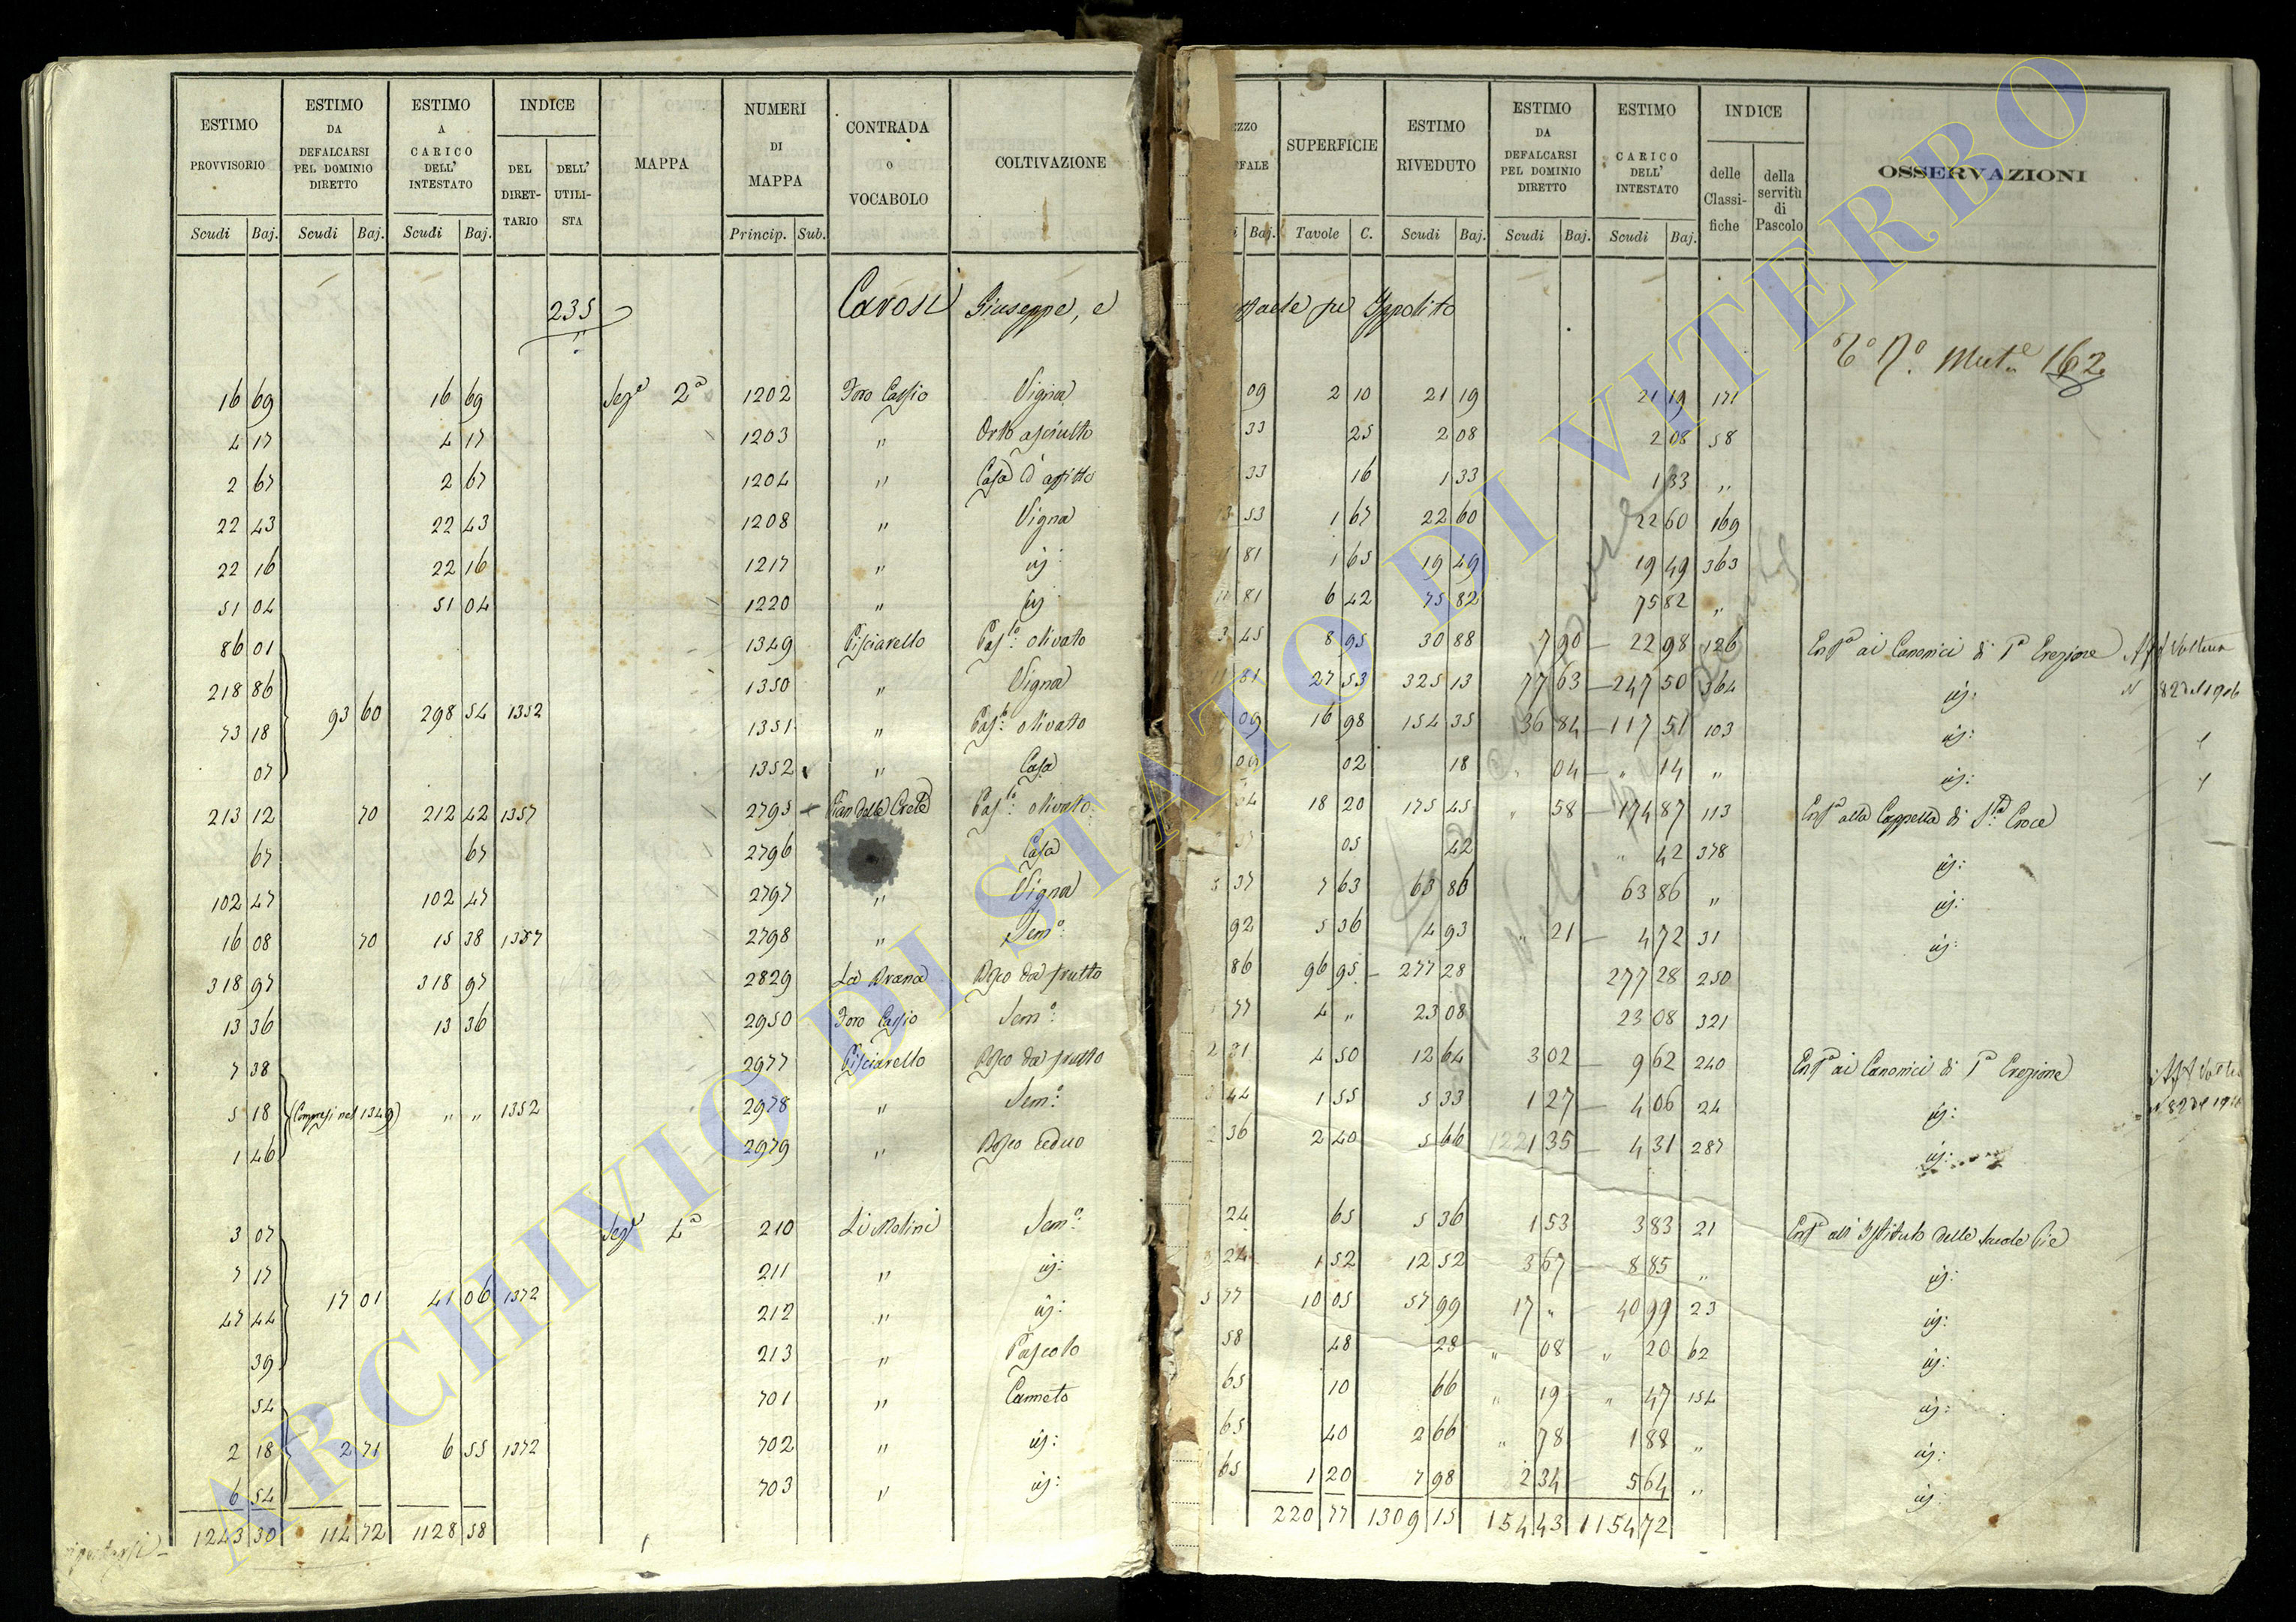 ESTIMO PROVVISORIO Scudi Baj. | ESTIMO DA DEFALCARSI PEL DOMINIO DIRETTO Scudi Baj. | ESTIMO A CARICO DELL' INTESTATO Scudi Baj. | INDICE DEL DIRETTARIO DELL' UTILISTA | MAPPA | NUMERI DI MAPPA Princip. Sub. | CONTRADA O VOCABOLO | COLTIVAZIONE
SUPERFICIE Tavole C. | ESTIMO RIVEDUTO Scudi Baj. | ESTIMO DA DEFALCARSI PEL DOMINIO DIRETTO Scudi Baj. | ESTIMO CARICO DELL' INTESTATO Scudi Baj. | INDICE delle Classifiche della servitù di Pascolo | OSSERVAZIONI
235 Carosi Giuseppe, e
fu Ippolito
Mut.e 162
16 69 16 69 Sez.e 2a 1202 Foro Cassio Vigna 09 2 10 21 19 21 19 171
4 17 4 17 1203 " Orto asciutto 33 25 2 08 2 08 58
2 67 2 67 1204 " Casa d'affitto 33 16 1 33 1 33 "
22 43 22 43 1208 " Vigna 53 1 67 22 60 22 60 169
22 16 22 16 1217 " iij 81 1 65 19 49 19 49 363
51 04 51 04 1220 " iij 81 6 42 75 82 75 82 "
86 01 1349 Pisciarello Pas.o: olivato 3 45 8 95 30 88 7 90 22 98 126 Enf.a ai Canonici di P.a Erezione
218 86 1350 " Vigna 81 27 53 325 13 77 63 247 50 364 iij:
73 18 93 60 298 54 1352 1351 " Pas.o: olivato 09 16 98 154 35 36 84 117 51 103 iij:
07 1352 " Casa 02 18 " 04 " 14 " iij:
213 12 70 212 42 1357 2795 Pian della Creta Pas.o: olivato 18 20 175 45 " 58 174 87 113 Enf.a alla Cappella di S.ta Croce
67 67 2796 Casa 05 42 " 42 378 iij:
102 47 102 47 2797 " Vigna 37 7 63 63 86 63 86 " iij:
16 08 70 15 38 1357 2798 " Sem.o: 92 5 36 4 93 " 21 4 72 31 iij:
318 97 318 97 2829 Bosco da frutto 86 96 95 277 28 277 28 250
13 36 13 36 2950 Foro Cassio Sem.o: 77 4 " 23 08 23 08 321
7 38 2977 Pisciarello Bosco da frutto 4 50 12 64 3 02 9 62 240 Enf.a ai Canonici di P.a Erezione
5 18 (Compresi nel 1349) " " 1352 2978 " Sem.o: 44 1 55 5 33 1 27 4 06 24 iij:
1 46 2979 " Bosco ceduo 36 2 40 5 66 1 35 4 31 287 iij:
3 07 Sez.e 4a 210 Li Molini Sem.o: 24 65 5 36 1 53 3 83 21 Enf.a all'Istituto delle Scuole Pie
7 17 211 " iij: 24 1 52 12 52 3 67 8 85 " iij:
47 44 17 01 41 06 1372 212 " iij: 77 10 05 57 99 17 " 40 99 23 iij:
39 213 " Pascolo 58 48 28 " 08 " 20 62 iij:
54 701 " Canneto 65 10 66 " 19 " 47 154 iij:
2 18 2 71 6 55 1372 702 " iij: 65 40 2 66 " 78 1 88 " iij:
6 54 703 " iij: 65 1 20 7 98 2 34 5 64 " iij:
1243 30 114 72 1128 58 220 77 1309 15 154 43 1154 72
ARCHIVIO DI STATO DI VITERBO